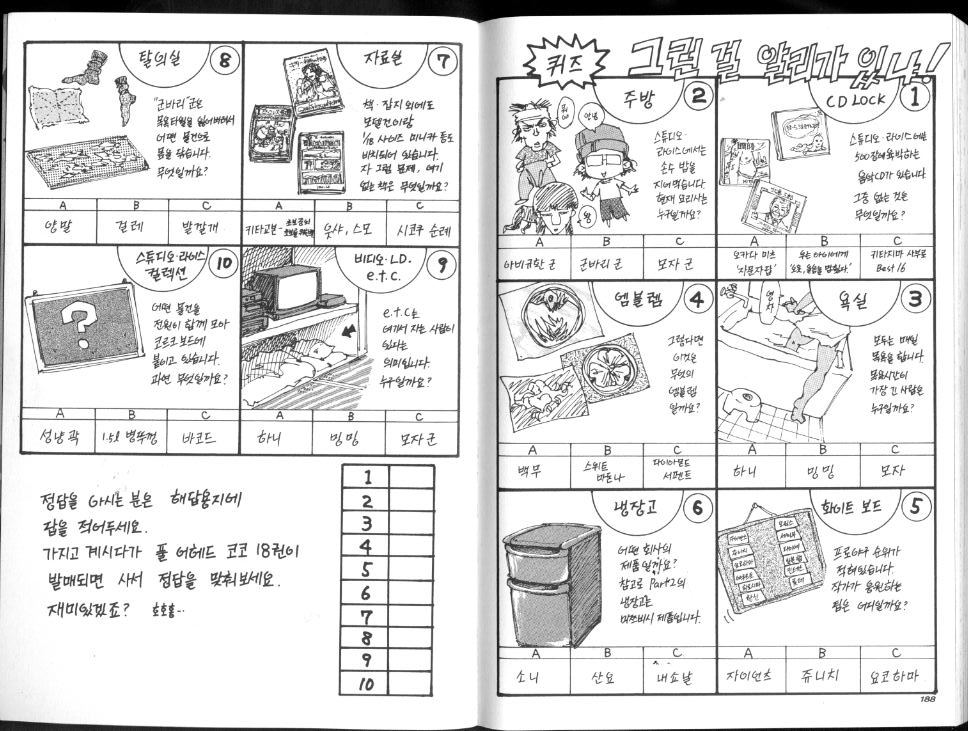 퀴즈 그런 걸 알리가 있냐!
CD LOCK 1
스튜디오·라이스에는
500장에 육박하는
음악CD가 있습니다
그중 없는 것은
무엇일까요?
A B C
오카다 미츠
키타지마 사부로
Best 16
주방 2
스튜디오·
라이스에서는
손수 밥을
지어먹습니다
현재 요리사는
누구일까요?
A B C
아비규환 군 군바리 군 모자 군
욕실 3
모두는 매일
목욕을 합니다
목욕시간이
가장 긴 사람은
누구일까요?
A B C
하니 밍밍 모자
엠블렘 4
그렇다면
이것은
무엇의
엠블렘
일까요?
A B C
백무 스위트 마돈나 다이아몬드 서펜트
화이트 보드 5
프로야구 순위가
적혀있습니다.
작가가 응원하는
팀은 어디일까요?
A B C
자이언츠 쥬니치 요코하마
냉장고 6
어떤 회사의
제품일까요?
참고로 Part2의
냉장고는
미쯔비시 제품입니다.
A B C
소니 산요 내쇼날
188
자료실 7
책·잡지 외에도
모델건이랑
1/18 사이즈 미니카 등도
비치되어 있습니다.
자 그럼 문제, 여기
없는 책은 무엇일까요?
A B C
웃샤, 스모 시코쿠 순례
탈의실 8
"군바리"군은
목욕타월을 잃어버려서
어떤 물건으로
몸을 닦습니다.
무엇일까요?
A B C
양말 걸레 발깔개
비디오·LD. e.t.c. 9
e.t.c는
여기서 자는 사람이
있다는
의미입니다.
누구일까요?
A B C
하니 밍밍 모자 군
스튜디오·라이스 컬렉션 10
?
어떤 물건을
전원이 함께 모아
코르크 보드에
붙이고 있습니다.
과연 무엇일까요?
A B C
성냥곽 1.5ℓ 병뚜껑 바코드
정답을 아시는 분은 해답용지에
답을 적어두세요.
가지고 계시다가 풀 어헤드 코코 18권이
발매되면 사서 정답을 맞춰보세요.
재미있겠죠? 호호홍…
1
2
3
4
5
6
7
8
9
10